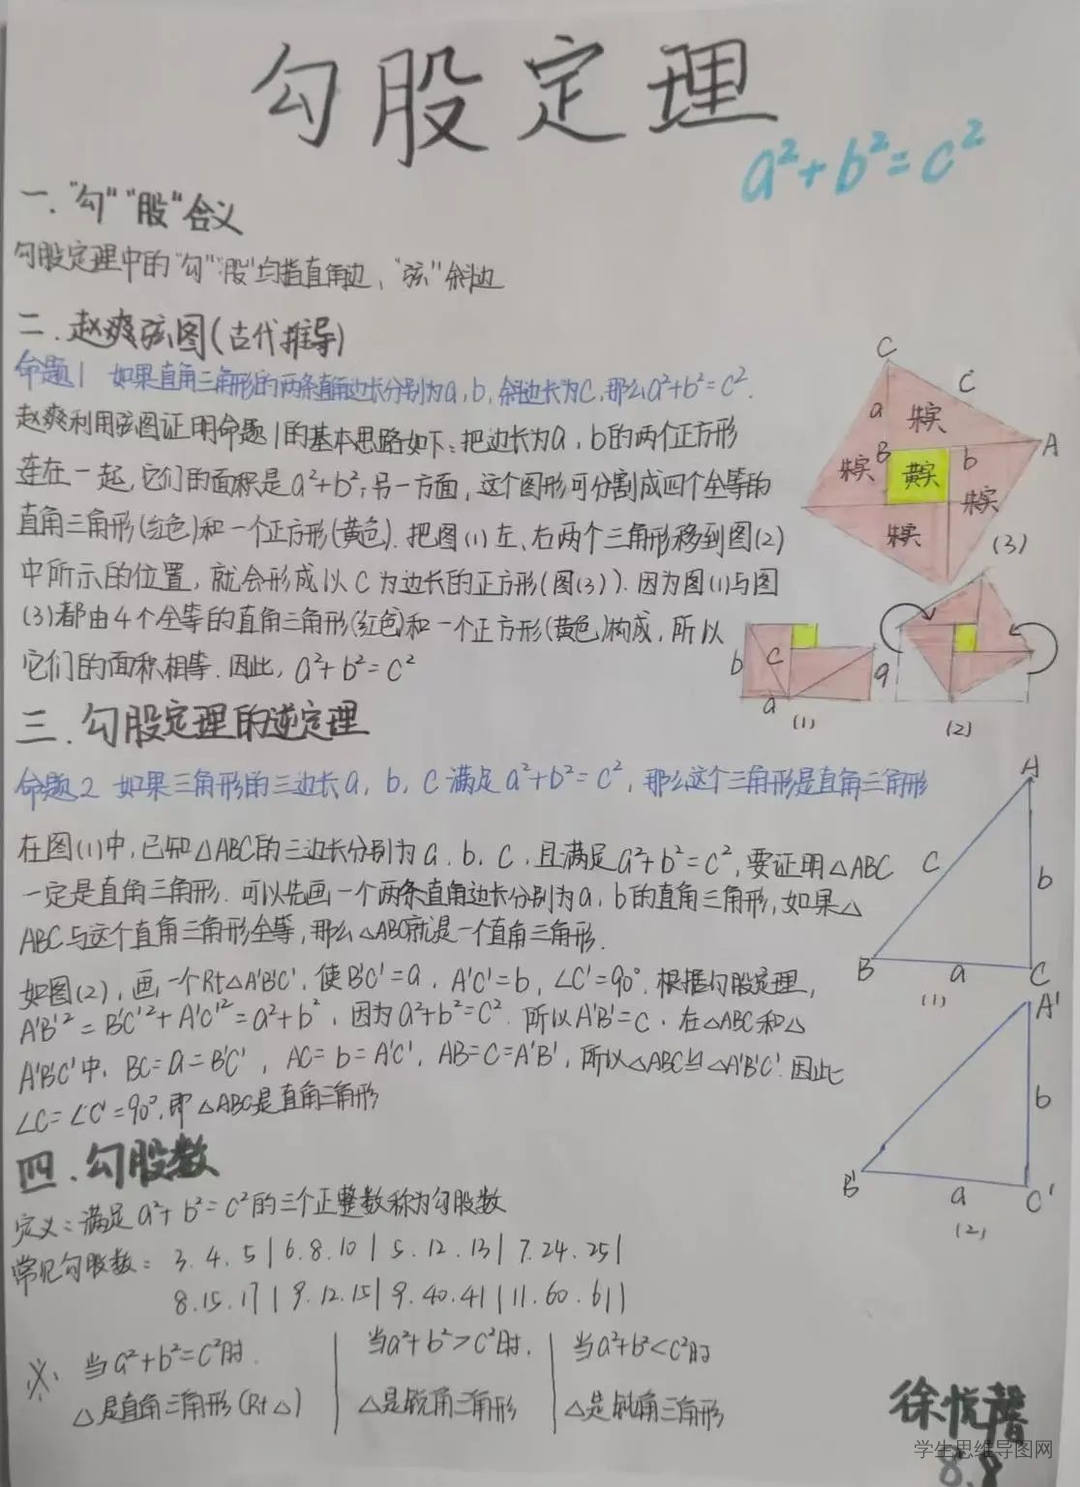 勾股定理
a²+b²=c²
一."勾""股"含义
勾股定理中的"勾""股"均指直角边,"弦"斜边
二.赵爽弦图(古代推导)
命题1 如果直角三角形的两条直角边长分别为a,b,斜边长为c,那么a²+b²=c².
赵爽利用弦图证明命题1的基本思路如下:把边长为a,b的两个正方形
连在一起,它们的面积是a²+b²;另一方面,这个图形可分割成四个全等的
直角三角形(红色)和一个正方形(黄色).把图(1)左、右两个三角形移到图(2)
中所示的位置,就会形成以c为边长的正方形(图(3)).因为图(1)与图
(3)都由4个全等的直角三角形(红色)和一个正方形(黄色)构成,所以
它们的面积相等.因此,a²+b²=c²
C
c
a
朱实
B
A
朱实
黄实
b
朱实
朱实
(3)
b
c
a
a
(1)
(2)
三.勾股定理的逆定理
命题2 如果三角形的三边长a,b,c满足a²+b²=c²,那么这个三角形是直角三角形
在图(1)中,已知△ABC的三边长分别为a.b.c,且满足a²+b²=c²,要证明△ABC
一定是直角三角形.可以先画一个两条直角边长分别为a,b的直角三角形,如果△
ABC与这个直角三角形全等,那么△ABC就是一个直角三角形.
如图(2),画一个Rt△A'B'C',使B'C'=a,A'C'=b,∠C'=90°.根据勾股定理,
A'B'²=B'C'²+A'C'²=a²+b²,因为a²+b²=c².所以A'B'=c.在△ABC和△
A'B'C'中,BC=a=B'C',AC=b=A'C',AB=c=A'B',所以△ABC≌△A'B'C'.因此
∠C=∠C'=90°,即△ABC是直角三角形
A
c
b
B
a
C
(1)
A'
b
B'
a
C'
(2)
四.勾股数
定义:满足a²+b²=c²的三个正整数称为勾股数
常见勾股数:3.4.5|6.8.10|5.12.13|7.24.25|
8.15.17|9.12.15|9.40.41|11.60.61|
※ 当a²+b²=c²时.
△是直角三角形(Rt△)
当a²+b²>c²时.
△是锐角三角形
当a²+b²<c²时
△是钝角三角形
徐悦馨
8.8
学生思维导图网